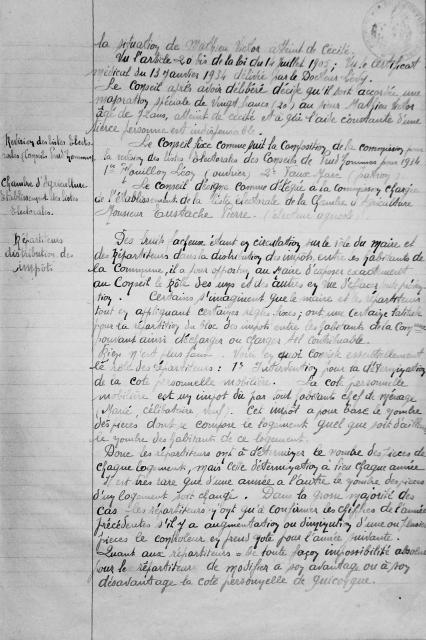 la situation de Mathieu Victor atteint de Cécité.
Vu l'article 20 bis de la loi du 14 juillet 1905; Vu le certificat
médical du 13 janvier 1934 délivré par le Docteur
Le Conseil après avoir délibéré décide qu'il soit accordé une
majoration spéciale de Vingt francs (20) au sieur Mathieu Victor
âgé de ans, atteint de cécité et à qui l'aide constante d'une
tierce personne est indispensable.
Révision des listes Électo-
rales (Conseils Prud'hommes)
Le Conseil fixe comme suit la Composition de la commission pour
la révision des listes Électorales des Conseils de Prud'hommes pour 1934
1° Léon (ouvrier) 2° Marc (patron).
Chambre d'Agriculture
Établissement des listes
Électorales.
Le Conseil désigne comme délégué à la commission chargée
de l'Établissement de la liste électorale de la Chambre d'Agriculture
Monsieur Eustache Pierre. (Électeur agricole)
Répartiteurs
distribution des
impôts
Des bruits fâcheux étant en circulation sur le rôle du maire et
des Répartiteurs dans la distribution des impôts entre les habitants de
la Commune, il a paru opportun au Maire d'exposer exactement
au Conseil le rôle des uns et des autres en vue d'effacer toute préven-
tion. Certains s'imaginent que le maire et les répartiteurs
tout en appliquant certaines règles fixes; ont une certaine latitude
pour la répartition du bloc des impôts entre les habitants de la Comune
pouvant ainsi décharger ou charger tel contribuable.
Rien n'est plus faux. Voici en quoi consiste essentiellement
le rôle des répartiteurs: 1° Intervention pour la détermination
de la cote personnelle mobilière. La cote personnelle
mobilière est un impôt dû par tout habitant chef de ménage
(Marié, célibataire, veuf). Cet impôt a pour base le nombre
des pièces dont se compose le logement quel que soit d'ailleurs
le nombre des habitants de ce logement.
Donc les répartiteurs ont à déterminer le nombre des pièces de
chaque logement, mais cette détermination a lieu chaque année
Il est très rare que d'une année à l'autre le nombre des pièces
d'un logement soit changé. Dans la grosse majorité des
cas les répartiteurs n'ont qu'à confirmer les chiffres de l'année
précédente s'il y a augmentation ou diminution d'une ou plusieurs
pièces le contrôleur en prend note pour l'année suivante.
Quant aux répartiteurs de toute façon impossibilité absolue
pour le répartiteur de modifier à son avantage ou à son
désavantage la cote personnelle de quiconque.